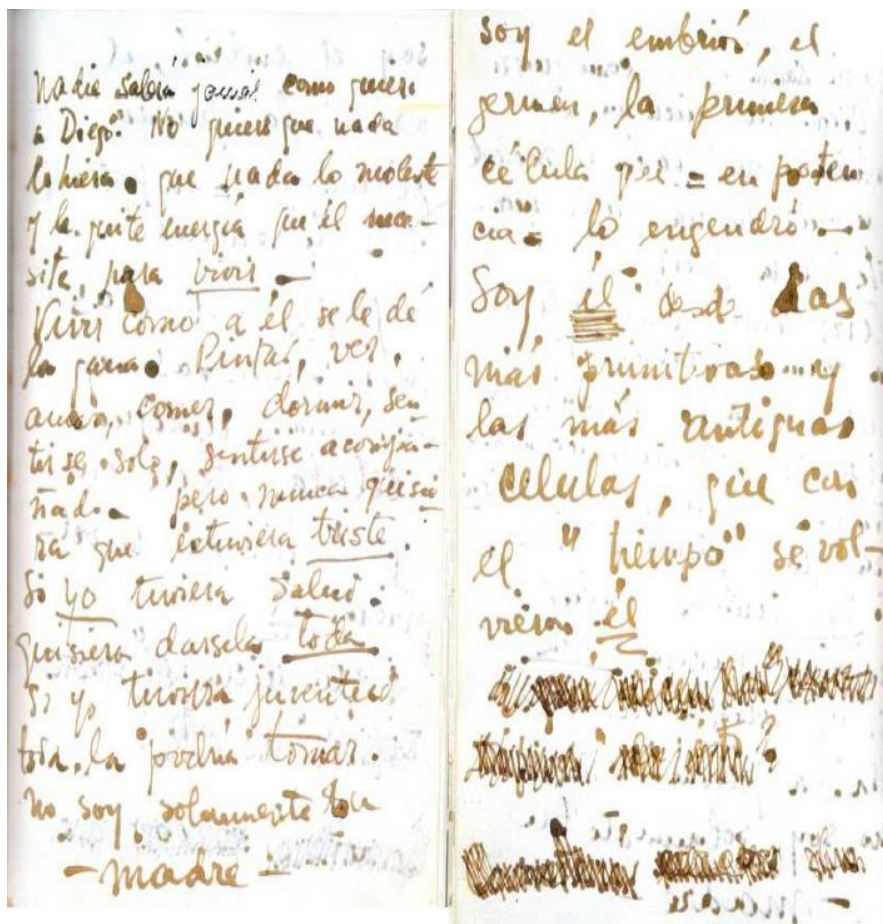 Nadie sabrá jamás como quiero
a Diego. No quiero que nada
lo hiera. que nada lo moleste
y le quite energía que él nece-
site, para vivir -
Vivir como a él se le dé
la gana. Pintar, ver,
amar, comer, dormir, sen-
tirse solo, sentirse acompa-
ñado - pero nunca quisie
ra que estuviera triste.
Si yo tuviera salud
quisiera darsela toda
si yo tuviera juventud
toda la podría tomar.
no soy solamente tu
- madre -
soy el embrión, el
germen, la primera
célula que = en poten
cia = lo engendró -
Soy él desde las
más primitivas... y
las más antiguas
celulas, que con
el "tiempo" se vol-
vieron él